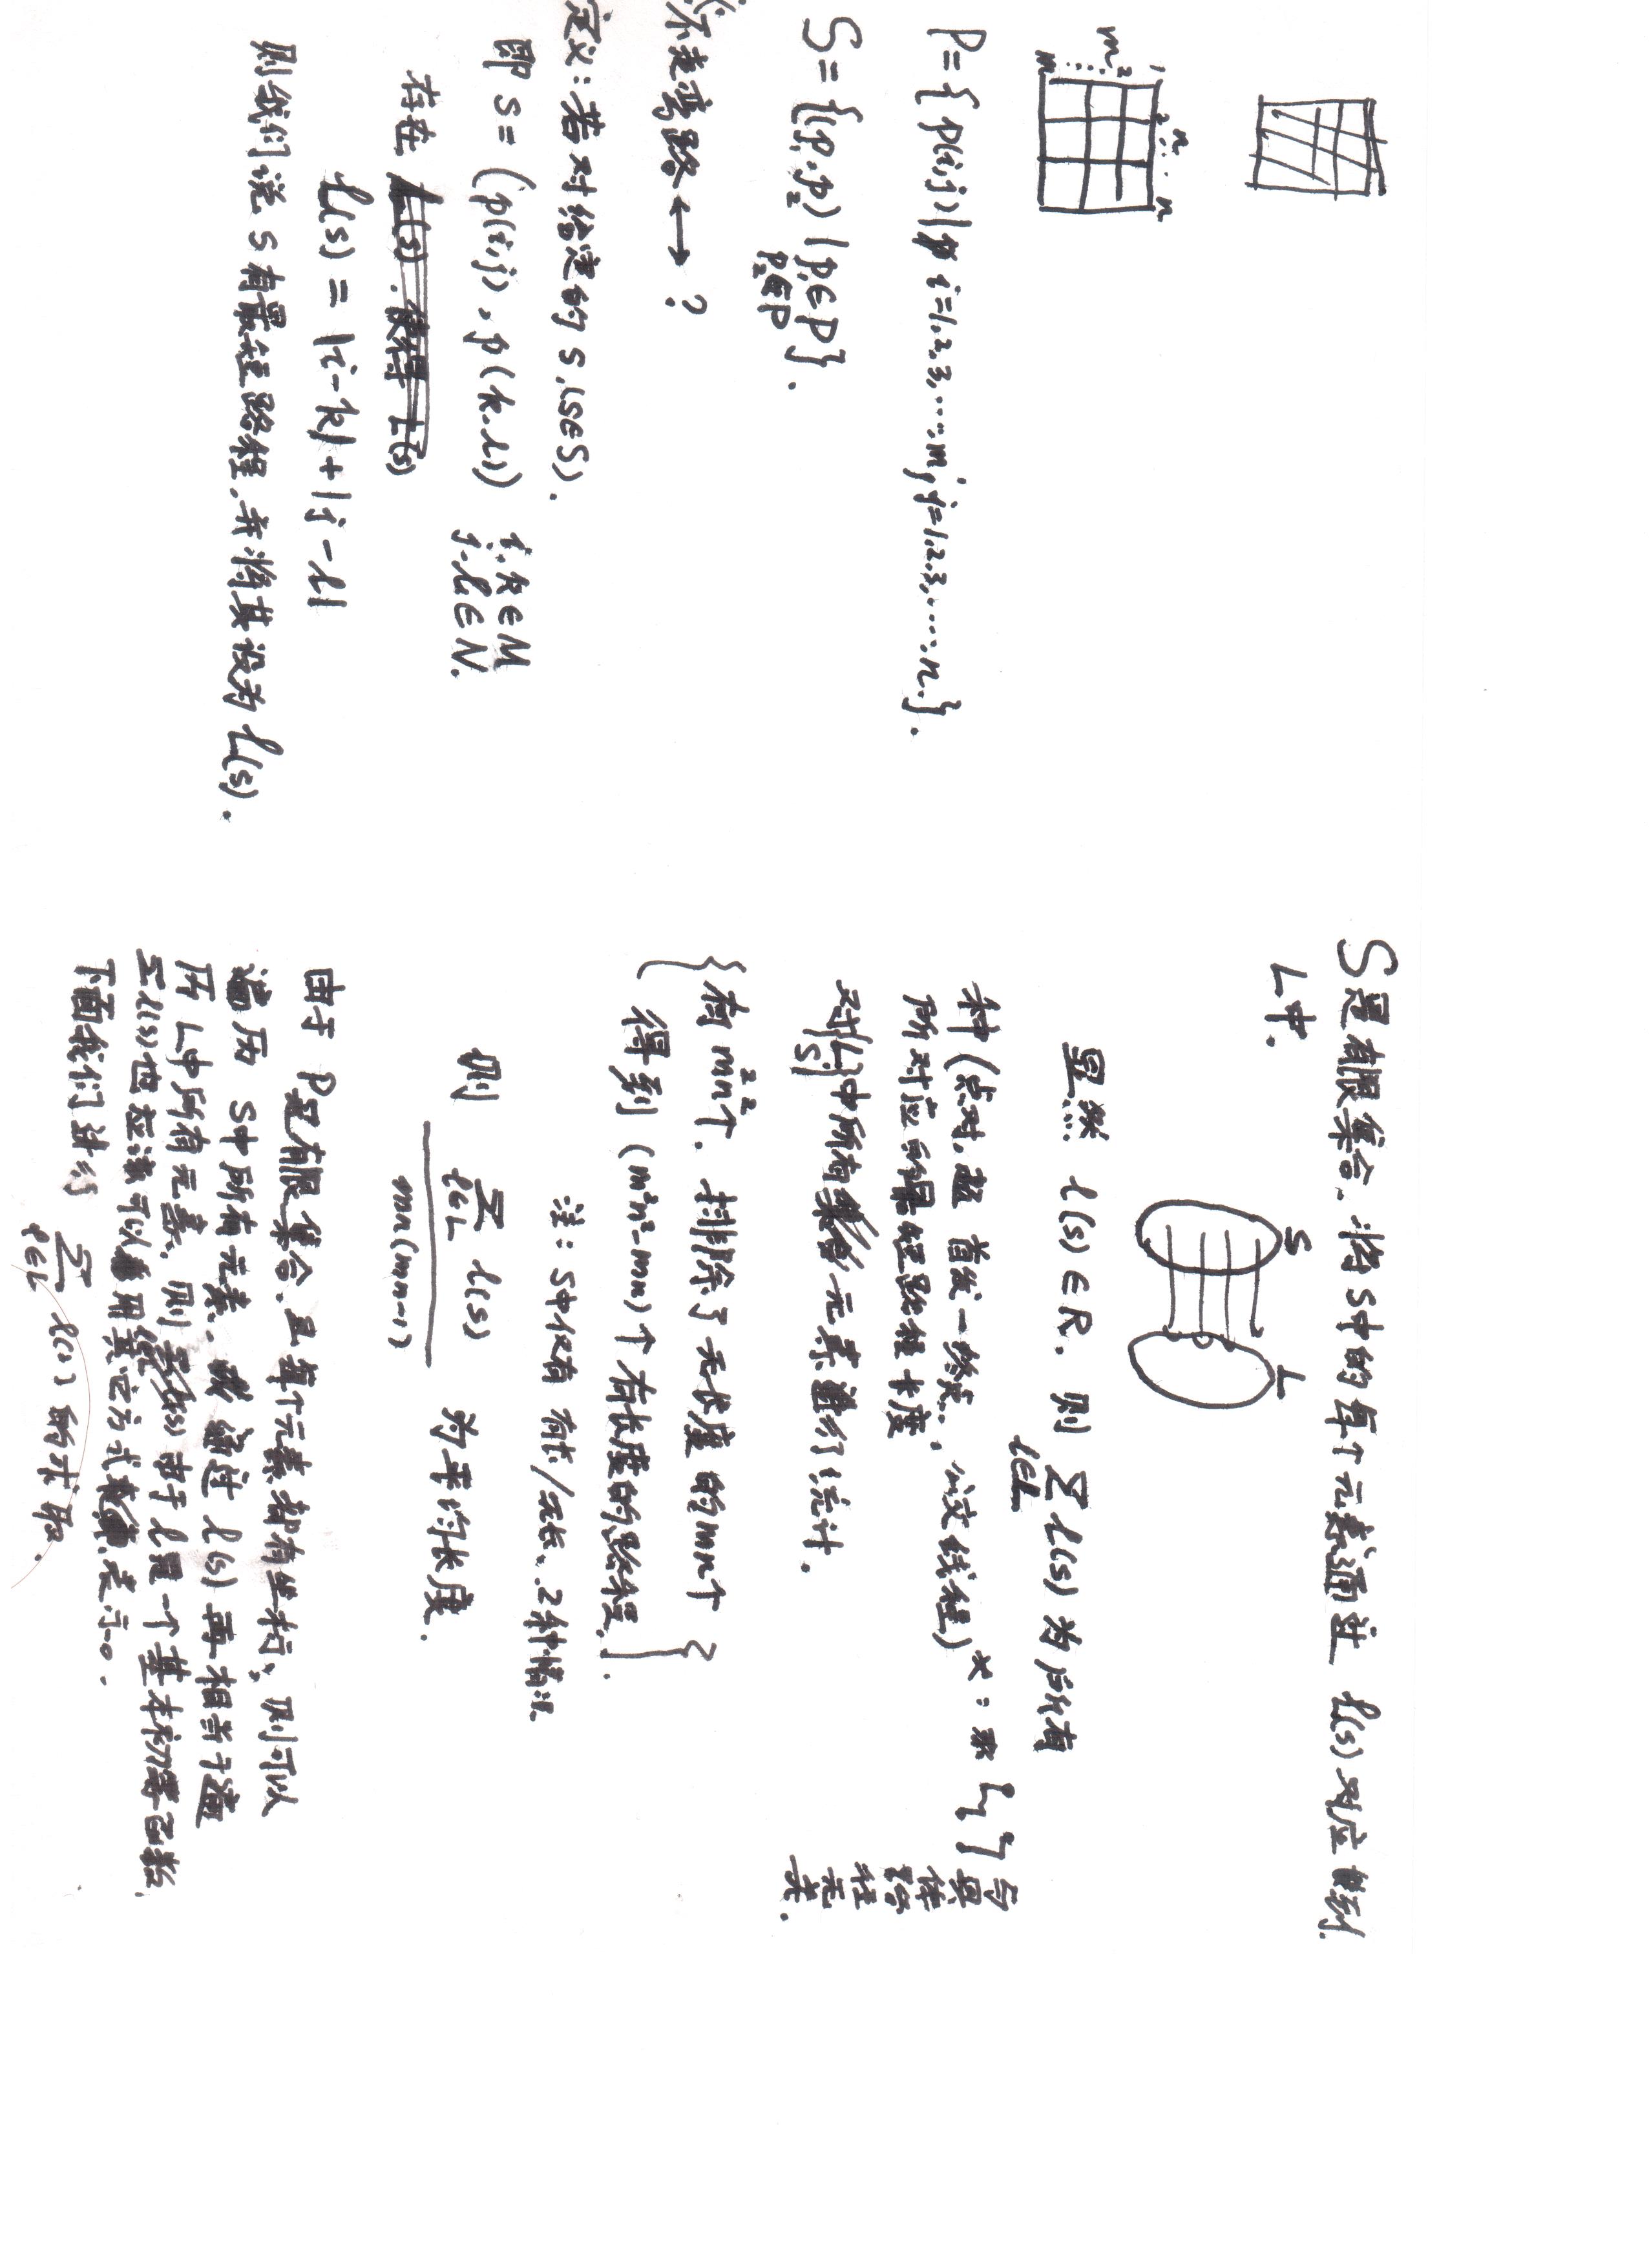 n
1 2 ... n
m 2
⋮
m
P={p(i,j)| i=1,2,3,…,m, j=1,2,3,…,n.}.
S={(p₁,p₂)|p₁∈P}.
p₂∈P
不走弯路↔?
定义:若对给定的s,(s∈S).
即 s=(p(i,j),p(k,l)) i,k∈M
j,l∈N.
存在 L(s).使得 L(s)
l(s)=|i-k|+|j-l|
则我们说 s有最短路程,并将其设为 l(s).
S是有限集合.将S中的每个元素通过 l(s)对应到.
L中.
S L
显然 l(s)∈R. 则 Σ l(s) 为所有
l∈L
种(点对, 首发-终点.,公交线程)*:
所对应的最短路程长度
与具体路径无关.
对{L S}中所有集合元素进行统计.
{有m²n²个. 排除了无长度的mn个
得到 (m²n²-mn)个有长度的路程.}.
注: S中仅有 有长/无长..2种情况
则 Σ l(s) 为平均长度.
l∈L
mn(mn-1)
由于 P是有限集合.且每个元素都有坐标,则可以
遍历 S中所有元素. 通过 l(s) 再相当于遍
历 L中所有元素. 则 Σl(s) 由于l是一个基本初等函数.
Σl(s)也应该可以用其它方式表示。.
下面我们进行 Σ l(s) 的求取.
l∈L